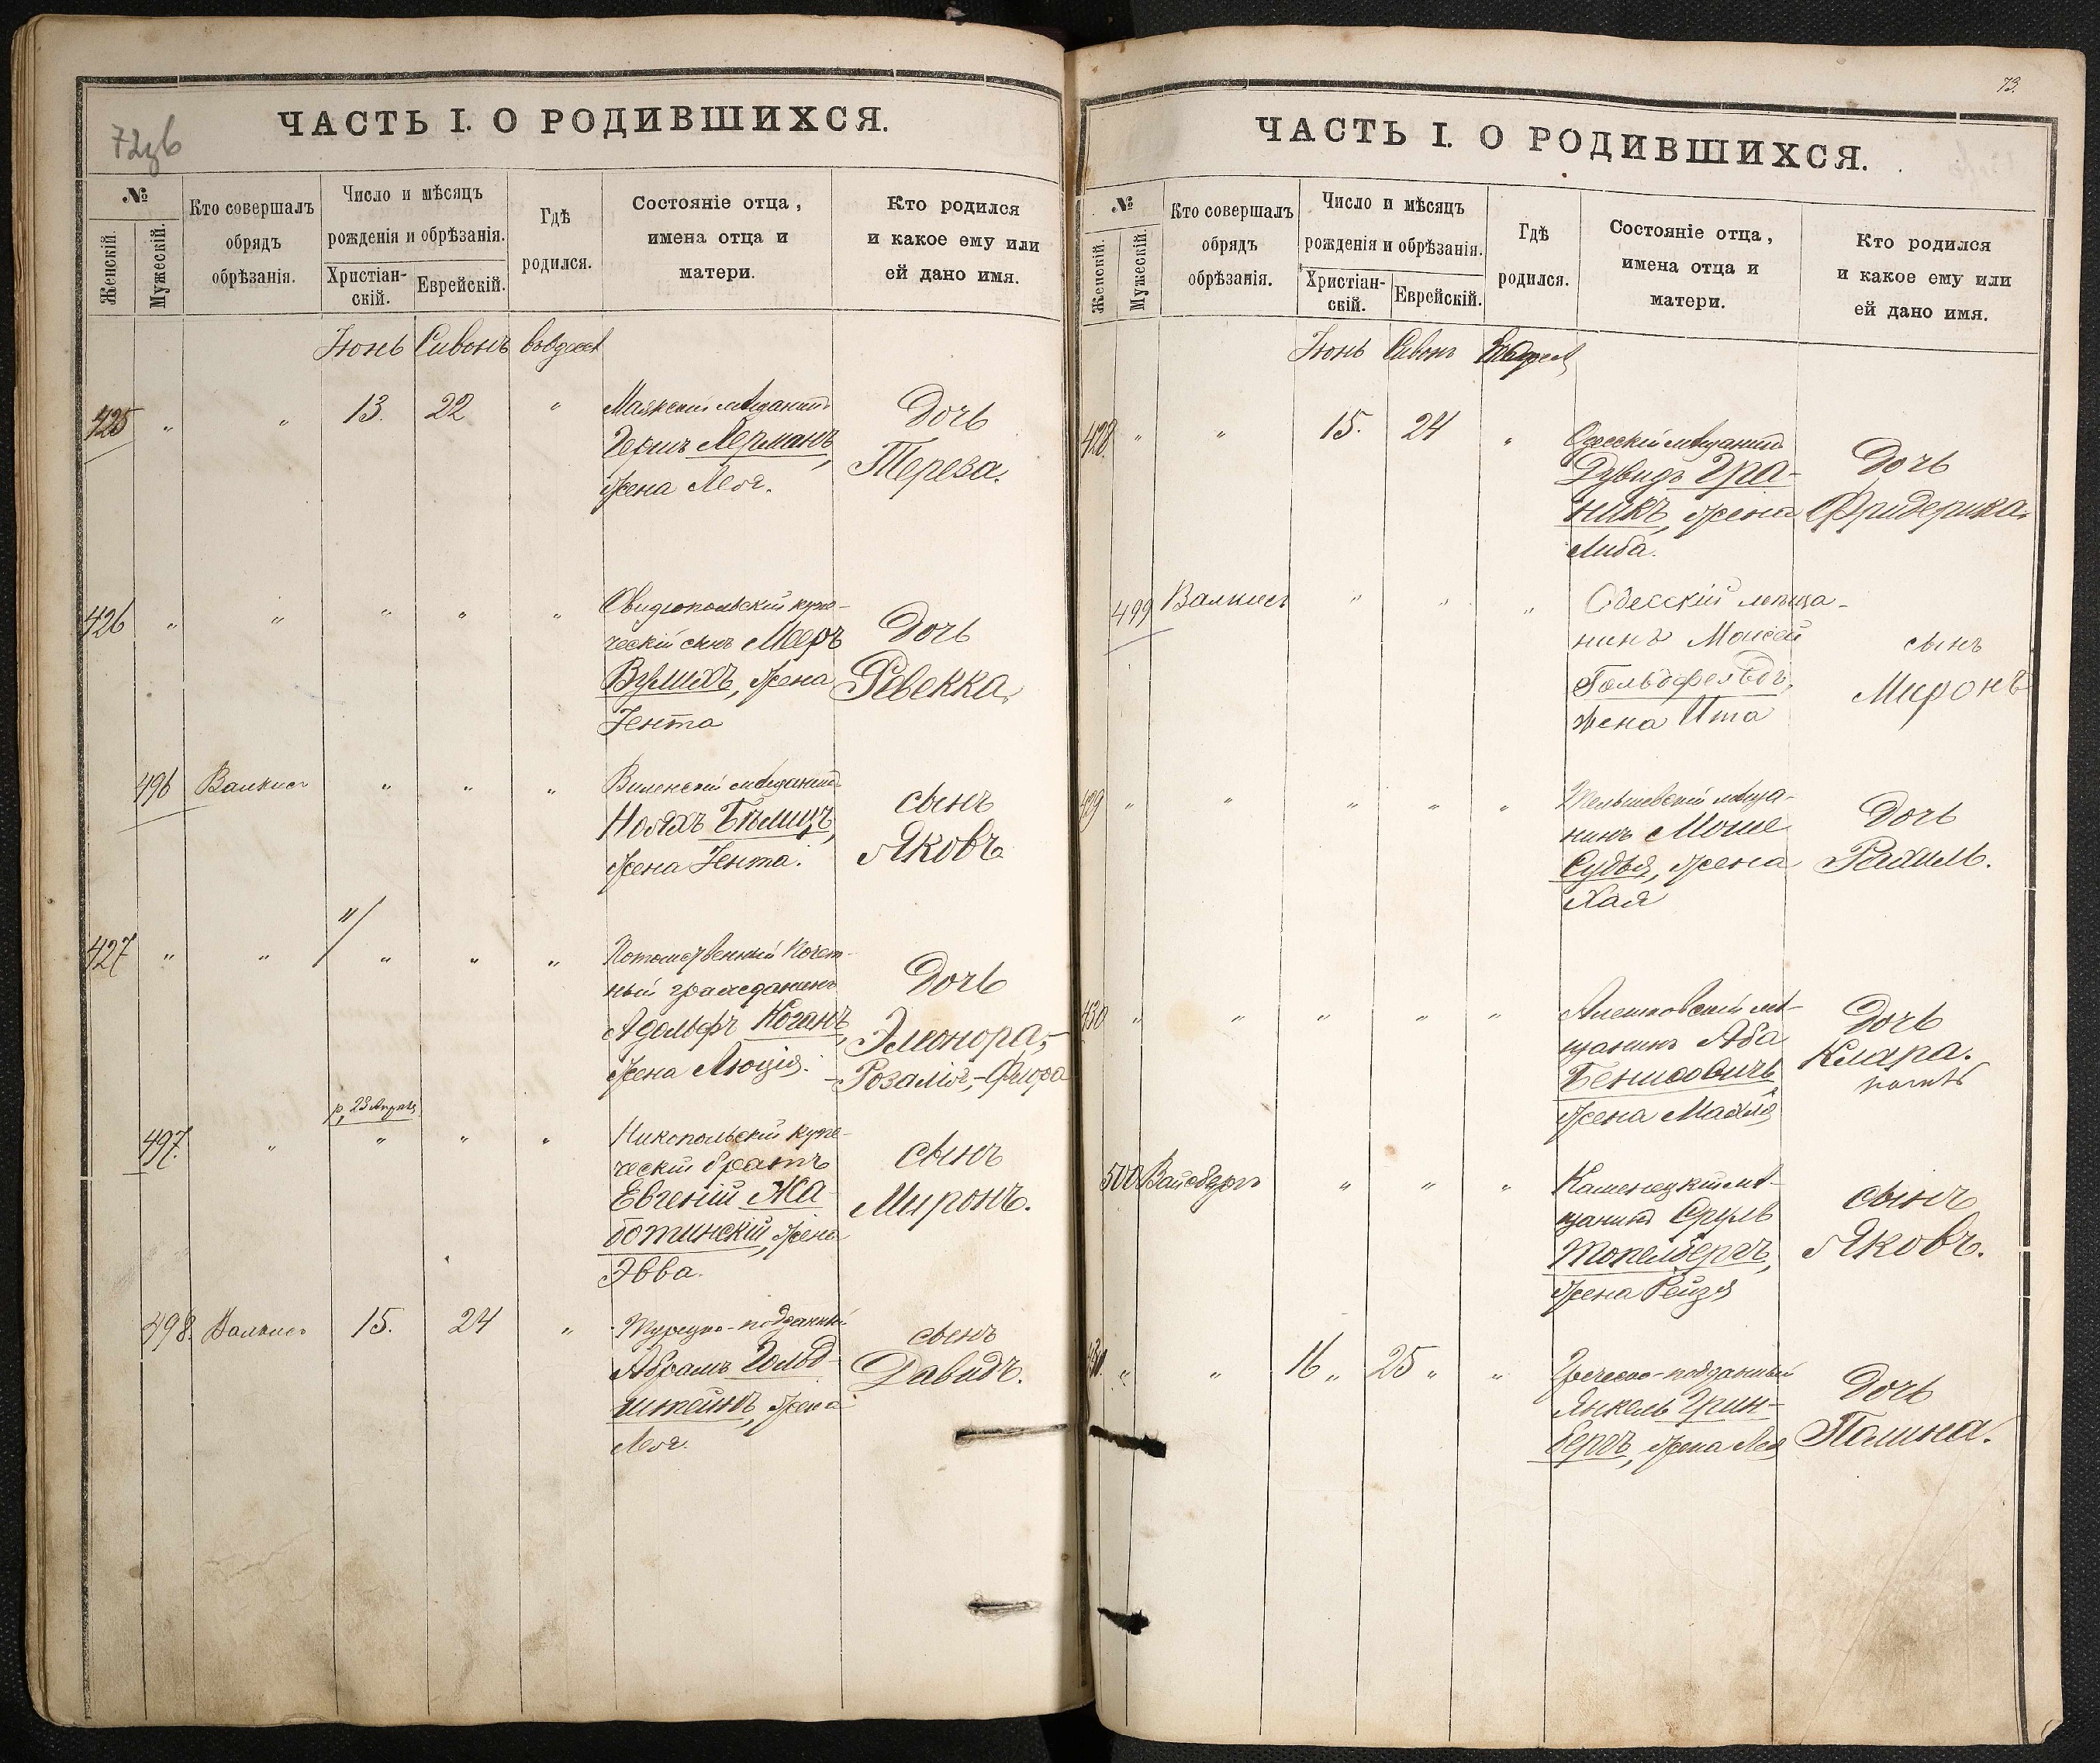 72об
ЧАСТЬ I. О РОДИВШИХСЯ.
№
Женскій.
Мужескій.
Кто совершалъ
обрядъ
обрѣзанія.
Число и мѣсяцъ
рожденія и обрѣзанія.
Христіан-
скій.
Еврейскій.
Гдѣ
родился.
Состояніе отца,
имена отца и
матери.
Кто родился
и какое ему или
ей дано имя.
Іюнь Сивонъ
425 " " 13. 22 "
Маякскій мѣщанинъ
Германъ,
жена Лея.
Дочь
Тереза.
426 " " " " "
Овидіопольскій купе-
ческій сынъ Мееръ
Вурлихъ, жена
Іента
Дочь
Ревекка,
496 Валкисъ " " "
Виленскій мѣщанинъ
Ноахъ Бѣлицъ,
жена Іента.
сынъ
Яковъ
"/
427 " " " " "
Потомственный Почет-
ный гражданинъ
Адольфъ Коганъ,
жена Люція.
Дочь
Элеонора,-
-Розалія,-Флора
р. 23 Апрѣля
497. " " " "
Никопольскій купе-
ческій братъ
Евгеній Жа-
ботинскій, жена
Эвва.
сынъ
Миронъ.
498. Валкисъ 15. 24 "
Турецко-подданный
Абрамъ Гольд-
штейнъ, жена
Лея.
сынъ
Давидъ.
73.
ЧАСТЬ I. О РОДИВШИХСЯ.
№
Женскій.
Мужескій.
Кто совершалъ
обрядъ
обрѣзанія.
Число и мѣсяцъ
рожденія и обрѣзанія.
Христіан-
скій.
Еврейскій.
Гдѣ
родился.
Состояніе отца,
имена отца и
матери.
Кто родился
и какое ему или
ей дано имя.
Іюнь Сивонъ
428. " " 15. 24 "
Одесскій мѣщанинъ
Дувидъ Гра-
никъ, жена
Либа.
Дочь
Фридерика.
499 Валкисъ " " "
Одесскій мѣща-
нинъ Моисей
Гольдфельдъ,
жена Ита
сынъ
Миронъ
429 " " " " "
Тельшевскій мѣща-
нинъ Моше
Судья, жена
Хая
Дочь
Рахиль.
430 " " " " "
Алешковскій мѣ-
щанинъ Аба
Бениовичъ,
жена Махля
Дочь
Клара.
500 Вайсбургъ " " "
Каменецкій мѣ-
щанинъ Сруль
Топельбергъ,
жена Рейзя
сынъ
Яковъ.
431. " " 16 " 25 " "
Греческо-подданный
Янкель Грин-
бергъ, жена Лея
Дочь
Полина.